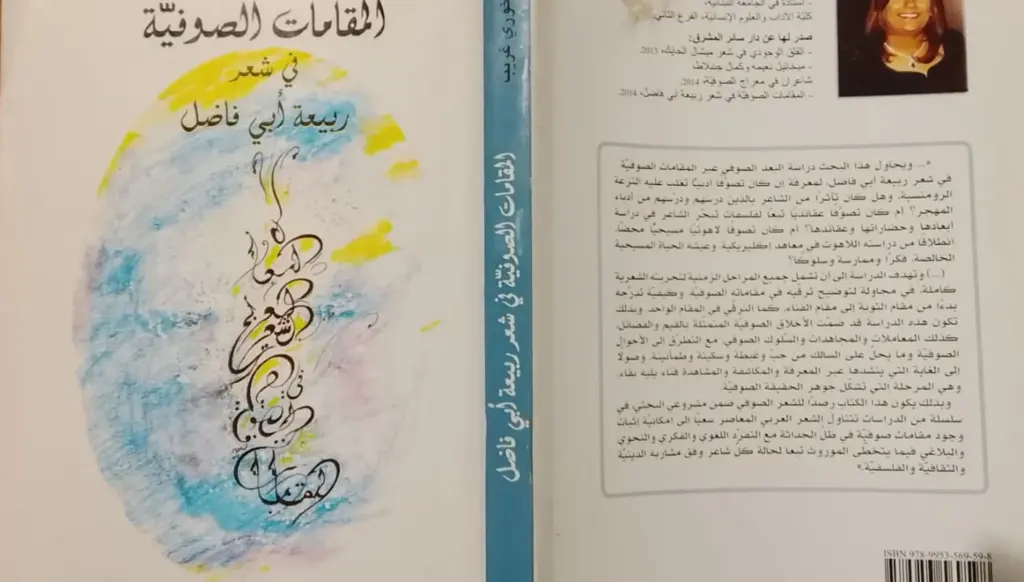 المقامات الصوفيّة
في شعر
ربيعة أبي فاضل
المقامات الصوفيّة في شعر ربيعة أبي فاضل
خوري غريب
- أستاذة في الجامعة اللبنانية،
كليّة الآداب والعلوم الإنسانية، الفرع الثاني.
صدر لها عن دار سائر المشرق:
- القلق الوجودي في شعر ميشال الحايك، 2013.
- ميخائيل نعيمه وكمال جنبلاط،
شاعران في معراج الصوفيّة، 2014.
- المقامات الصوفيّة في شعر ربيعة أبي فاضل، 2014.
«... ويحاول هذا البحث دراسة البعد الصوفي عبر المقامات الصوفيّة
في شعر ربيعة أبي فاضل، لمعرفة إن كان تصوّفًا أدبيًا تغلب عليه النزعة
الرومنسية، وهل كان تأثرًا من الشاعر بالذين درسهم ودرّسهم من أدباء
المهجر؟ أم كان تصوّفًا عقائديًا تبعًا لفلسفات تبحّر الشاعر في دراسة
أبعادها وحضاراتها وعقائدها؟ أم كان تصوفًا لاهوتيًا مسيحيًا محضًا،
انطلاقًا من دراسته اللاهوت في معاهد إكليريكية، وعيشه الحياة المسيحية
الخالصة، فكرًا وممارسة وسلوكًا؟
(...) وتهدف الدراسة إلى أن تشمل جميع المراحل الزمنية لتجربته الشعرية
كاملة، في محاولة لتوضيح ترقّيه في مقاماته الصوفيّة، وكيفيّة تدرّجه
بدءًا من مقام التوبة إلى مقام الفناء، كما الترقّي في المقام الواحد. وبذلك
تكون هذه الدراسة قد ضمّت الأخلاق الصوفية المتمثلة بالقيم والفضائل،
كذلك المعاملات والمجاهدات والسلوك الصوفي، مع التطرّق إلى الأحوال
الصوفيّة وما يحلّ على السالك من حبّ وغبطة وسكينة وطمأنينة، وصولًا
إلى الغاية التي ينشدها عبر المعرفة والمكاشفة والمشاهدة فناء يليه بقاء،
وهي المرحلة التي تشكّل جوهر الحقيقة الصوفيّة.
وبذلك يكون هذا الكتاب رصدًا للشعر الصوفي ضمن مشروعي البحثي في
سلسلة من الدراسات تتناول الشعر العربي المعاصر سعيًا إلى إمكانيّة إثبات
وجود مقامات صوفيّة في ظلّ الحداثة مع التفرّد اللغوي والفكري والنحوي
والبلاغي فيما يتخطّى الموروث تبعًا لحالة كل شاعر وفق مشاربه الدينيّة
والثقافيّة والفلسفيّة.»
ISBN 978-9953-569-59-8